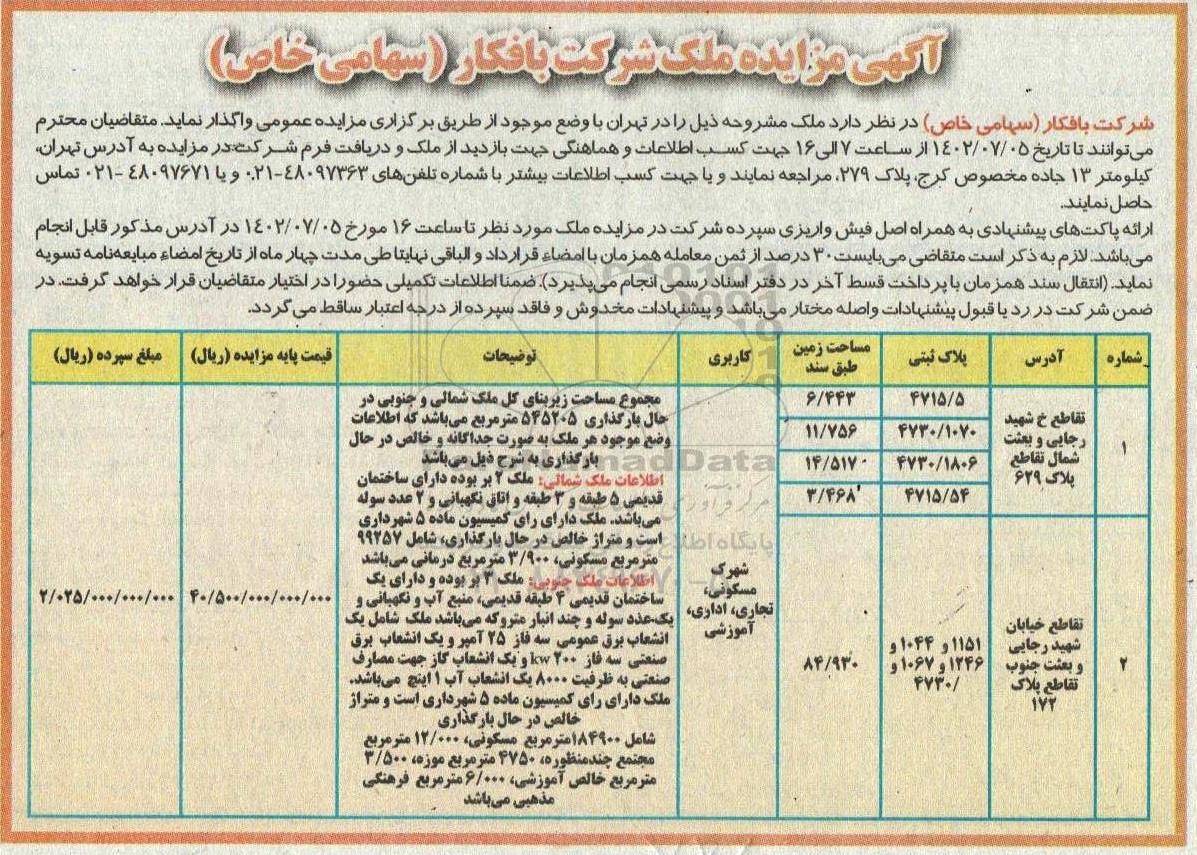 آگهی مزایده ملک شرکت بافکار (سهامی خاص)
شرکت بافکار (سهامی خاص) در نظر دارد ملک مشروحه ذیل را در تهران با وضع موجود از طریق برگزاری مزایده عمومی واگذار نماید. متقاضیان محترم
می‌توانند تا تاریخ ۱۴۰۲/۰۷/۰۵ از ساعت ۷ الی ۱۶ جهت کسب اطلاعات و هماهنگی جهت بازدید از ملک و دریافت فرم شرکت در مزایده به آدرس تهران،
کیلومتر ۱۳ جاده مخصوص کرج، پلاک ۲۷۹، مراجعه نمایند و یا جهت کسب اطلاعات بیشتر با شماره تلفن‌های ۴۸۰۹۷۳۶۳-۰۲۱ و یا ۴۸۰۹۷۶۷۱-۰۲۱ تماس
حاصل نمایند.
ارائه پاکت‌های پیشنهادی به همراه اصل فیش واریزی سپرده شرکت در مزایده ملک مورد نظر تا ساعت ۱۶ مورخ ۱۴۰۲/۰۷/۰۵ در آدرس مذکور قابل انجام
می‌باشد. لازم به ذکر است متقاضی می‌بایست ۳۰ درصد از ثمن معامله همزمان با امضاء قرارداد و الباقی نهایتا طی مدت چهار ماه از تاریخ امضاء مبایعه‌نامه تسویه
نماید. (انتقال سند همزمان با پرداخت قسط آخر در دفتر اسناد رسمی انجام می‌پذیرد). ضمنا اطلاعات تکمیلی حضورا در اختیار متقاضیان قرار خواهد گرفت. در
ضمن شرکت در رد یا قبول پیشنهادات واصله مختار می‌باشد و پیشنهادات مخدوش و فاقد سپرده از درجه اعتبار ساقط می گردد.
شماره آدرس پلاک ثبتی مساحت زمین طبق سند کاربری توضیحات قیمت پایه مزایده (ریال) مبلغ سپرده (ریال)
۱
تقاطع خ شهید
رجایی و بعثت
شمال تقاطع
پلاک ۶۲۹
۴۷۱۵/۵ ۶/۴۴۳
۴۷۳۰/۱۰۷۰ ۱۱/۷۵۶
۴۷۳۰/۱۸۰۶ ۱۴/۵۱۷
۴۷۱۵/۵۴ ۳/۴۶۸
۲
تقاطع خیابان
شهید رجایی
و بعثت جنوب
تقاطع پلاک
۱۷۲
۱۱۵۱ و ۱۰۴۴ و
۱۲۴۶ و ۱۰۶۷ و
/۴۷۳۰
۸۴/۹۳۰
شهرک
مسکونی،
تجاری، اداری،
آموزشی
مجموع مساحت زیربنای کل ملک شمالی و جنوبی در
حال بارگذاری ۵۴۵۲۰۵ مترمربع می‌باشد که اطلاعات
وضع موجود هر ملک به صورت جداگانه و خالص در حال
بارگذاری به شرح ذیل می‌باشد
اطلاعات ملک شمالی: ملک ۲ بر بوده دارای ساختمان
قدیمی ۵ طبقه و ۳ طبقه و اتاق نگهبانی و ۲ عدد سوله
می‌باشد. ملک دارای رای کمیسیون ماده ۵ شهرداری
است و متراژ خالص در حال بارگذاری، شامل ۹۹۲۵۷
مترمربع مسکونی، ۳/۹۰۰ مترمربع درمانی می‌باشد
اطلاعات ملک جنوبی: ملک ۳ بر بوده و دارای یک
ساختمان قدیمی ۴ طبقه قدیمی، منبع آب و نگهبانی و
یک عدد سوله و چند انبار متروکه می‌باشد ملک شامل یک
انشعاب برق عمومی سه فاز ۲۵ آمپر و یک انشعاب برق
صنعتی سه فاز kw ۲۰۰ و یک انشعاب گاز جهت مصارف
صنعتی به ظرفیت ۸۰۰۰ یک انشعاب آب ۱ اینچ می‌باشد.
ملک دارای رای کمیسیون ماده ۵ شهرداری است و متراژ
خالص در حال بارگذاری
شامل ۱۸۴۹۰۰مترمربع مسکونی، ۱۲/۰۰۰ مترمربع
مجتمع چندمنظوره، ۴۷۵۰ مترمربع موزه، ۳/۵۰۰
مترمربع خالص آموزشی، ۶/۰۰۰ مترمربع فرهنگی
مذهبی می‌باشد
۴۰/۵۰۰/۰۰۰/۰۰۰/۰۰۰
۲/۰۲۵/۰۰۰/۰۰۰/۰۰۰